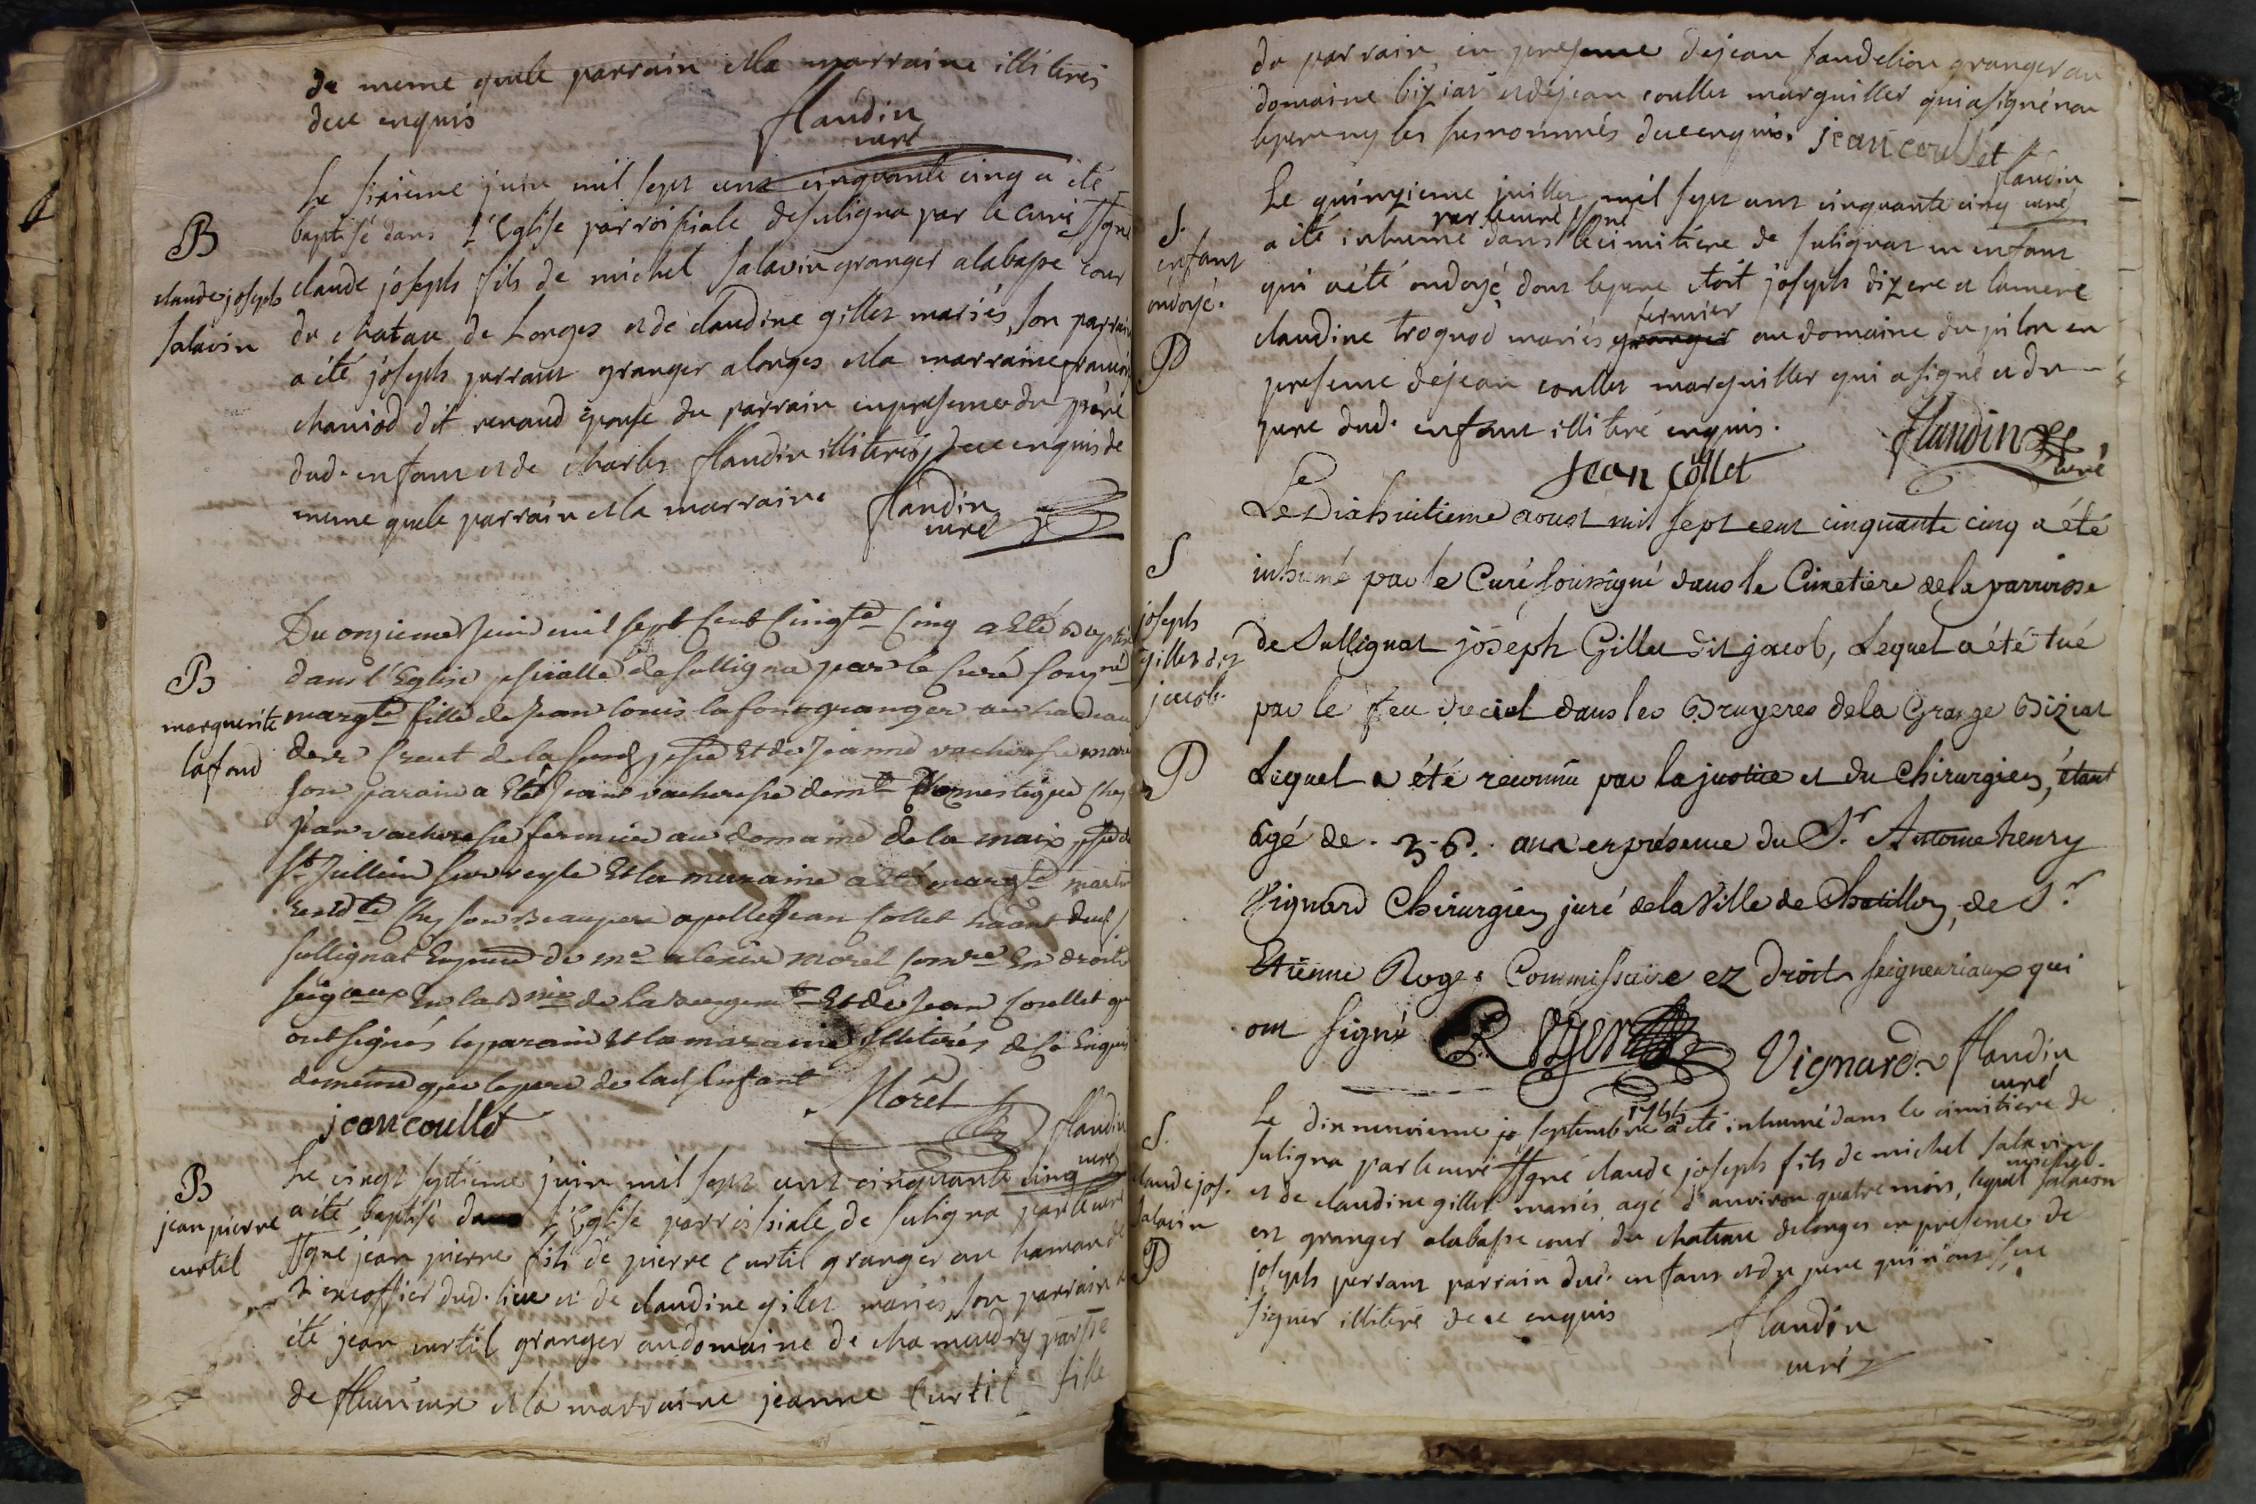 de meme quele parrain et la marraine illiterés
dece enquis
flandin
curé
Le sixieme juin mil sept cent cinquante cinq a été
B
baptisé dans l'Eglise parroissiale de suligna par le curé ssgné
claude joseph
salavin
claude joseph fils de michel salavin granger a la basse cour
du chatau de Longes et de claudine gillet mariés, son parrain
a été joseph perraut granger a longes et la marraine
chaniod dit renaud epouse du parrain en presence du pere
dud. enfant et de charles flandin illiterés, dece enquis de
meme quele parrain et la marraine
flandin
curé
Du onzieme Juin mil sept Cent Cinqte Cinq a Eté Baptisé
B
dans l'Eglise de sulligna par le Curé
marguerite
lafond
margte fille de Jean louis lafont granger au hameau
et de Jeanne vacheresse
son parain a Eté vacheresse domestique Chez
Jean vacheresse fermier au domaine de la
St Jullien sur veyle Et la maraine a Eté margte
Chez son Beaupere apellé Jean Collet
sullignat de me alexis morel Comre En droits
seigaux Et de Jean Coullet qui
ont signés le parain Et la maraine illiterés de Ce Enquis
de meme que le pere de lad Enfant
Morel
jean coullet
flandin
curé
Le vingt septieme juin mil sept cent cinquante cinq
B
jean pierre
curtil
a été baptisé dans l'Eglise parroissiale de suligna par le curé
ssgné jean pierre fils de pierre curtil granger au hamau de
dud. lieu et de claudine gillet mariés, son parrain a
été jean curtil granger au domaine de chamendry parsse
de fleurieux et la marraine jeanne Curtil fille
du parrain, en presence de jean tandelion granger au
domaine bizias et de jean coullet marguiller qui a signé non
le pere ny les susnommés de ce enquis. jean coullet
flandin
curé
Le quinzieme juillet mil sept cent cinquante cinq
S.
enfant
ondoyé.
P
par le curé ssgné
a été inhumé dans le cimitiere de sulignat un enfant
qui a été ondoyé, dont le pere etoit joseph dizere et la mere
fermier
claudine trognod mariés granger au domaine du pilon en
presence de jean coullet marguiller qui a signé et du
pere dud. enfant illiteré enquis.
flandin
curé
jean collet
Le Dixhuitieme aoust mil sept cent cinquante cinq a été
S
joseph
gillet dit
jacob.
P
inhumé par le Curé soussigné dans le Cimetiere de la parroisse
de Sullignat joseph Gillet dit jacob, Lequel a été tué
par le feu du ciel dans les Bruyeres de la Grange Bizias
Lequel a été reconnu par la justice et du Chirurgien, étant
agé de . 36 . ans en présence du Sr. Antoine henry
Vignard Chirurgien juré de la Ville de Chatillon, de Sr.
Etienne Roger Commissaire ez droits seigneuriaux qui
ont signé
Roger
Vignard
flandin
curé
1755
Le dixneuvieme septembre a été inhumé dans le cimitiere de
S.
claude jos.
salavin
P
suligna par le curé ssgné claude joseph fils de michel salavin
et de claudine gillet mariés, agé d'environ quatre mois, lequel michel salavin
est granger a la basse cour du chateau de longes en presence de
joseph perraut parrain dud. enfant et du pere qui n'ont sçu
signer illiteré de ce enquis
flandin
curé